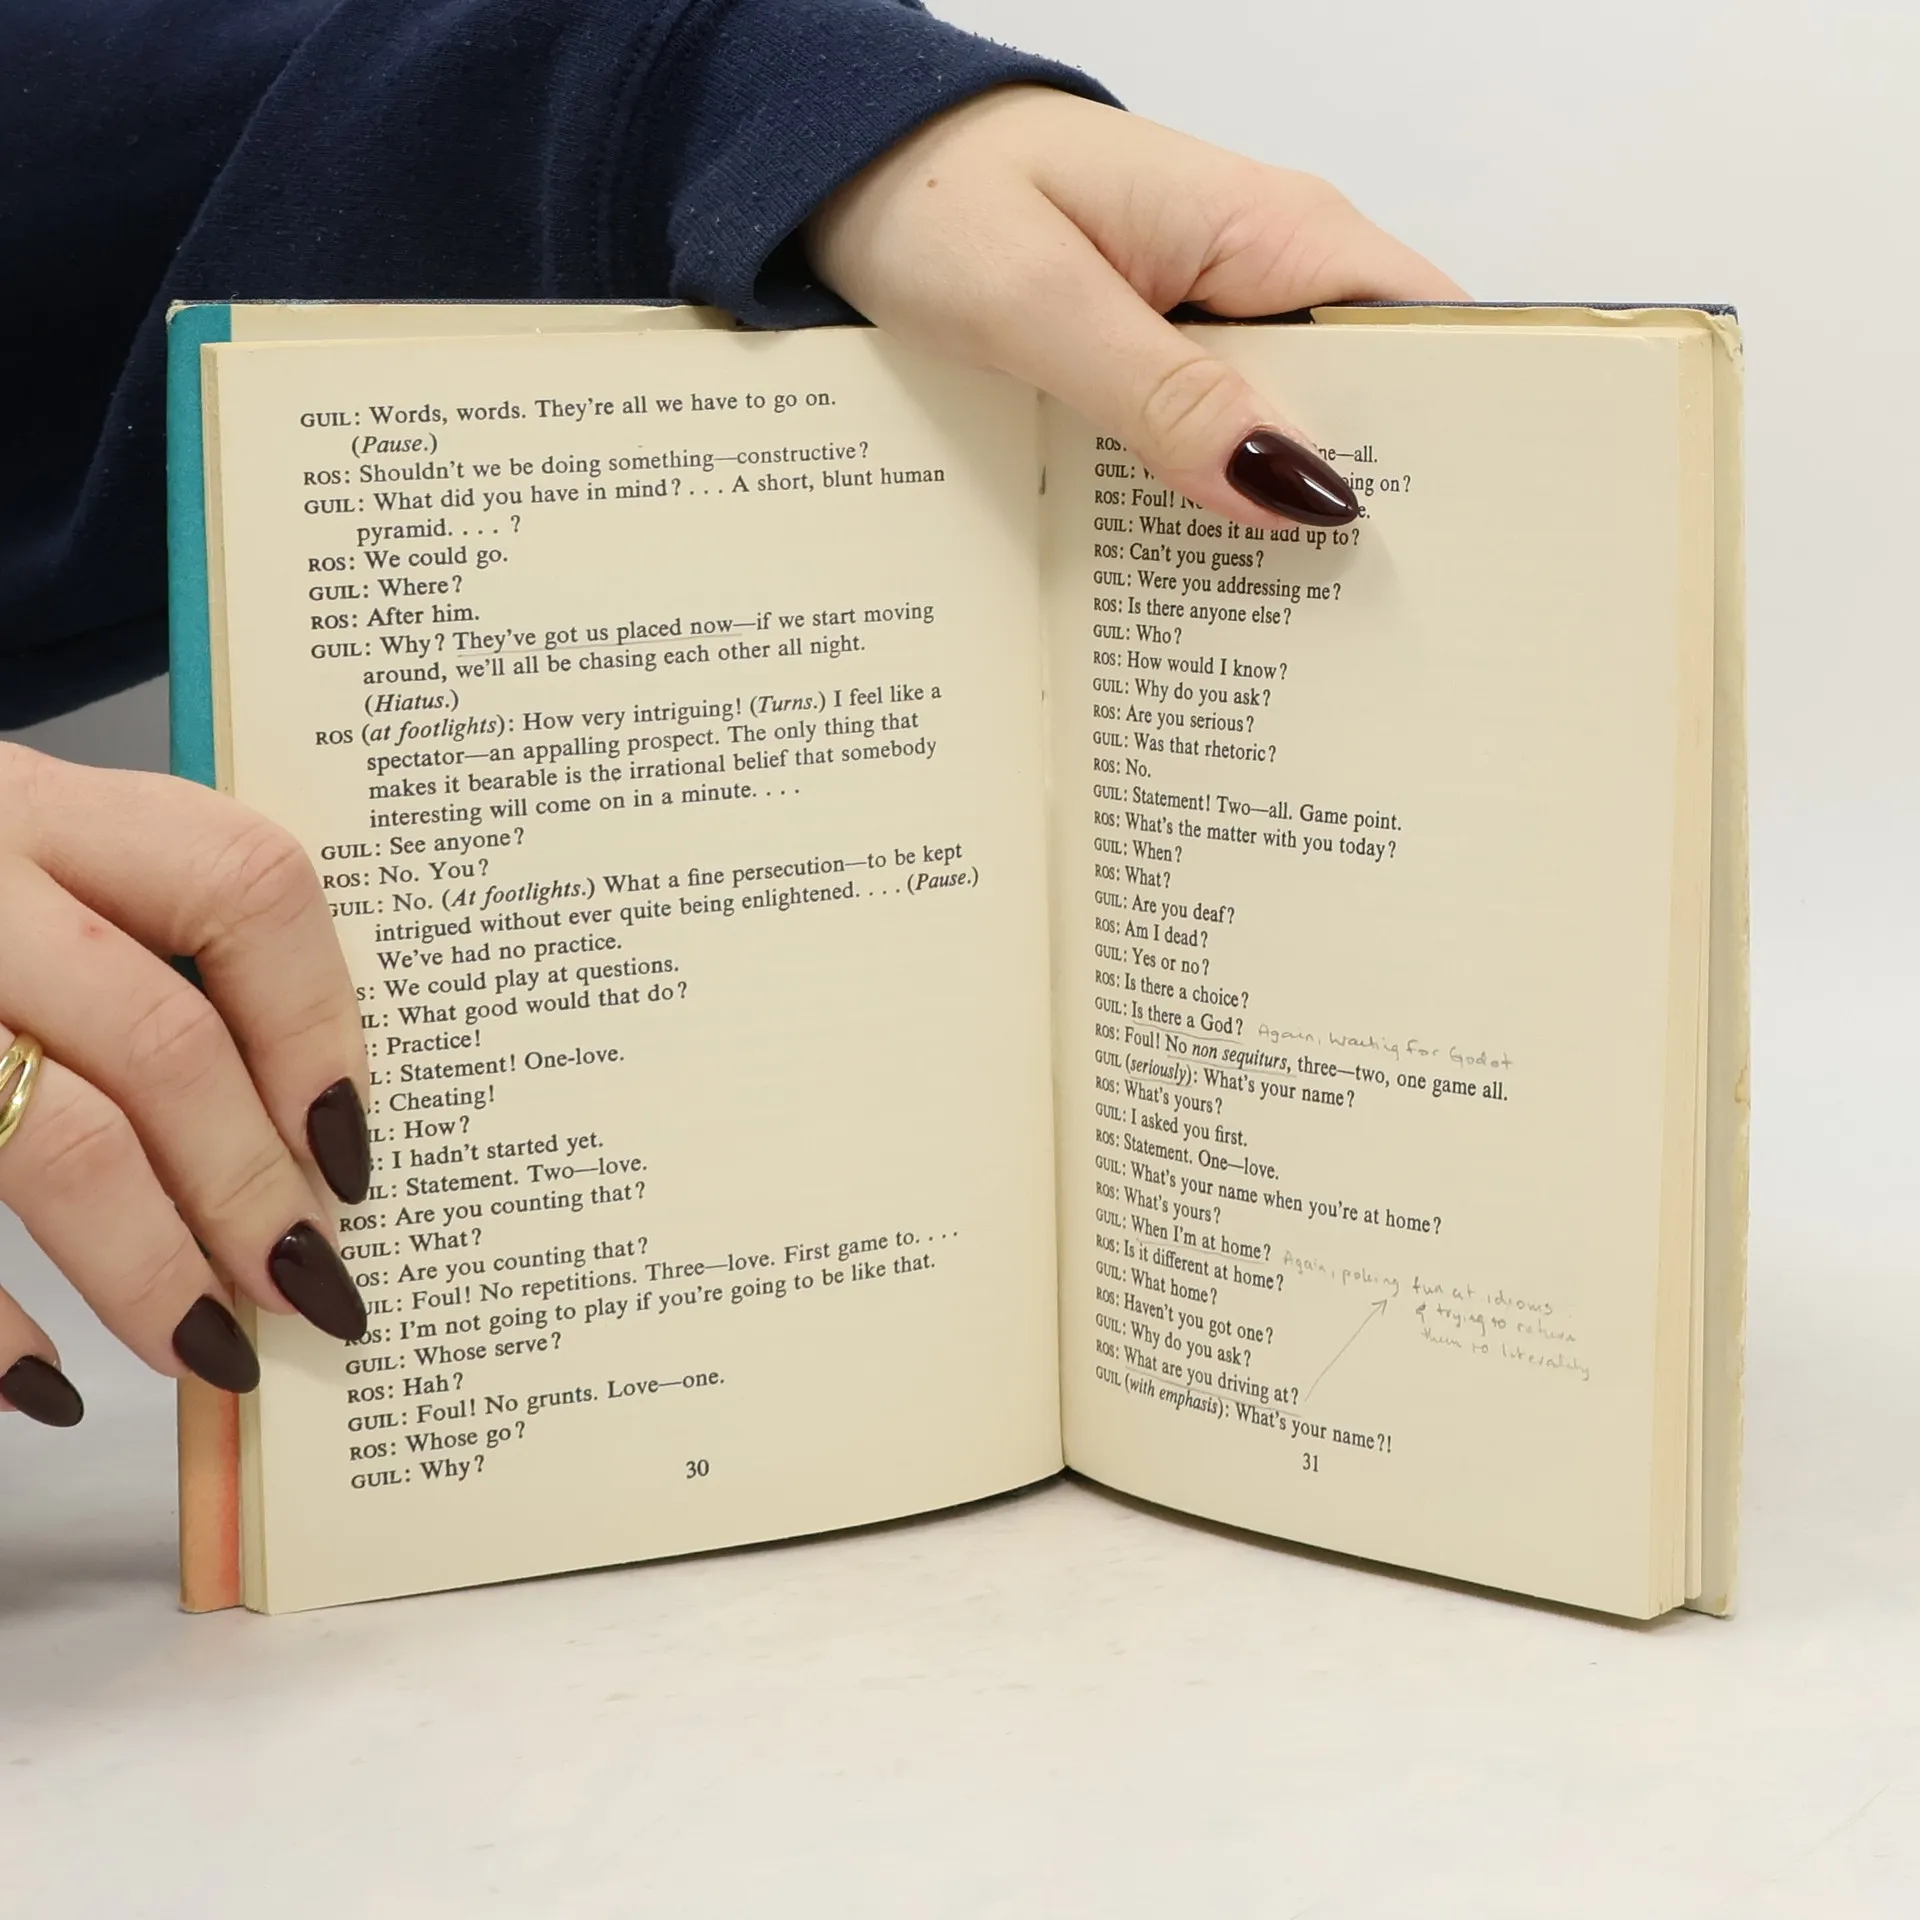 GUIL: Words, words. They're all we have to go on.
(Pause.)
ROS: Shouldn't we be doing something—constructive?
GUIL: What did you have in mind? . . . A short, blunt human
pyramid. . . . ?
ROS: We could go.
GUIL: Where?
ROS: After him.
GUIL: Why? They've got us placed now—if we start moving
around, we'll all be chasing each other all night.
(Hiatus.)
ROS (at footlights): How very intriguing! (Turns.) I feel like a
spectator—an appalling prospect. The only thing that
makes it bearable is the irrational belief that somebody
interesting will come on in a minute. . . .
GUIL: See anyone?
ROS: No. You?
GUIL: No. (At footlights.) What a fine persecution—to be kept
intrigued without ever quite being enlightened. . . . (Pause.)
We've had no practice.
S: We could play at questions.
IL: What good would that do?
: Practice!
L: Statement! One-love.
: Cheating!
IL: How?
: I hadn't started yet.
IL: Statement. Two—love.
ROS: Are you counting that?
GUIL: What?
OS: Are you counting that?
UIL: Foul! No repetitions. Three—love. First game to. . . .
ROS: I'm not going to play if you're going to be like that.
GUIL: Whose serve?
ROS: Hah?
GUIL: Foul! No grunts. Love—one.
ROS: Whose go?
GUIL: Why?
30
ROS: ne—all.
GUIL: oing on?
ROS: Foul! e.
GUIL: What does it all add up to?
ROS: Can't you guess?
GUIL: Were you addressing me?
ROS: Is there anyone else?
GUIL: Who?
ROS: How would I know?
GUIL: Why do you ask?
ROS: Are you serious?
GUIL: Was that rhetoric?
ROS: No.
GUIL: Statement! Two—all. Game point.
ROS: What's the matter with you today?
GUIL: When?
ROS: What?
GUIL: Are you deaf?
ROS: Am I dead?
GUIL: Yes or no?
ROS: Is there a choice?
GUIL: Is there a God? Again, Waiting for Godot
ROS: Foul! No non sequiturs, three—two, one game all.
GUIL (seriously): What's your name?
ROS: What's yours?
GUIL: I asked you first.
ROS: Statement. One—love.
GUIL: What's your name when you're at home?
ROS: What's yours?
GUIL: When I'm at home? Again, poking fun at idioms
ROS: Is it different at home? & trying to return
GUIL: What home? them to literality
ROS: Haven't you got one?
GUIL: Why do you ask?
ROS: What are you driving at?
GUIL (with emphasis): What's your name?!
31